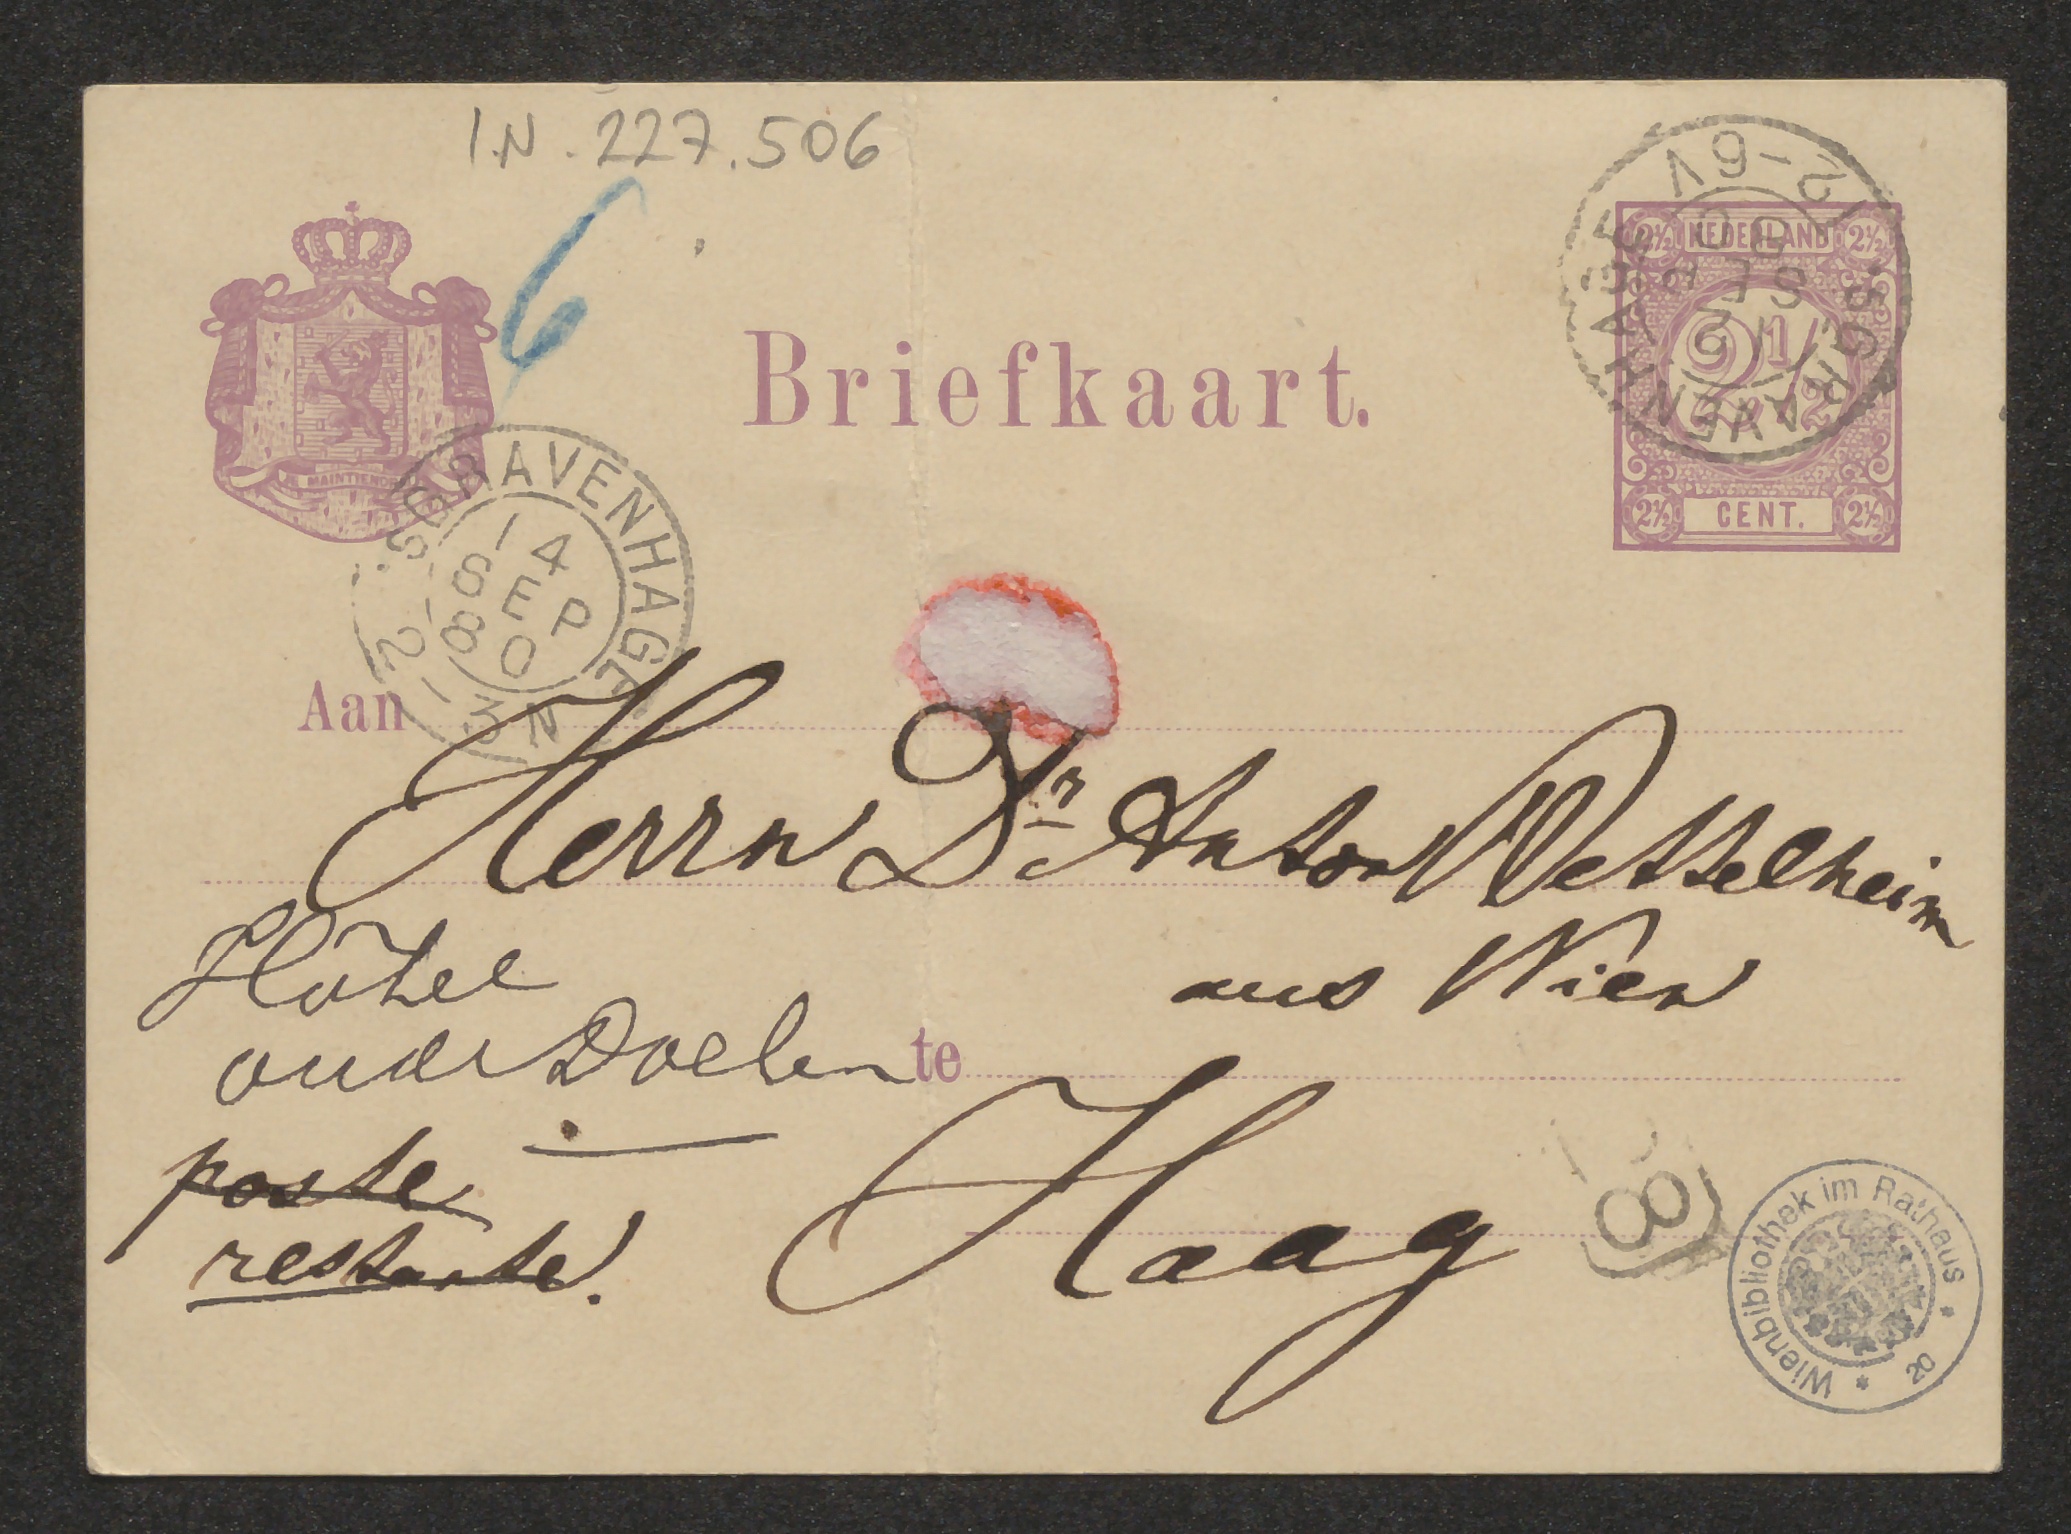 IN. 227.506
6
'S GRAVENHAGE
12-6V
12
SEP
80
2½ NEDERLAND 2½
2½
2½ CENT. 2½
JE MAINTIENDRAI
Briefkaart.
'S GRAVENHAGE
14
SEP
80
2-3N
Aan
Herrn Dr Anton Wesselheim
aus Wien
Hôtel
oude Doelen
te
Haag
poste
restante.
8
Wienbibliothek im Rathaus * 20 *